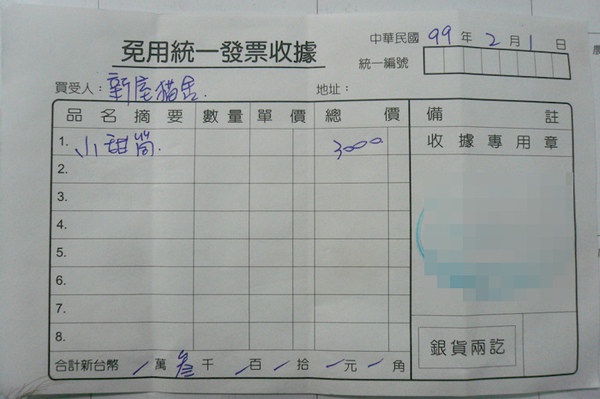 免用統一發票收據
中華民國 99 年 2 月 1 日
統一編號
買受人：新屋猫舍. 地址：
品名摘要 數量 單價 總價 備註
1. 小甜筒. 3000 收據專用章
2.
3.
4.
5.
6.
7.
8.
銀貨兩訖
合計新台幣 / 萬 叁 千 / 百 / 拾 / 元 / 角